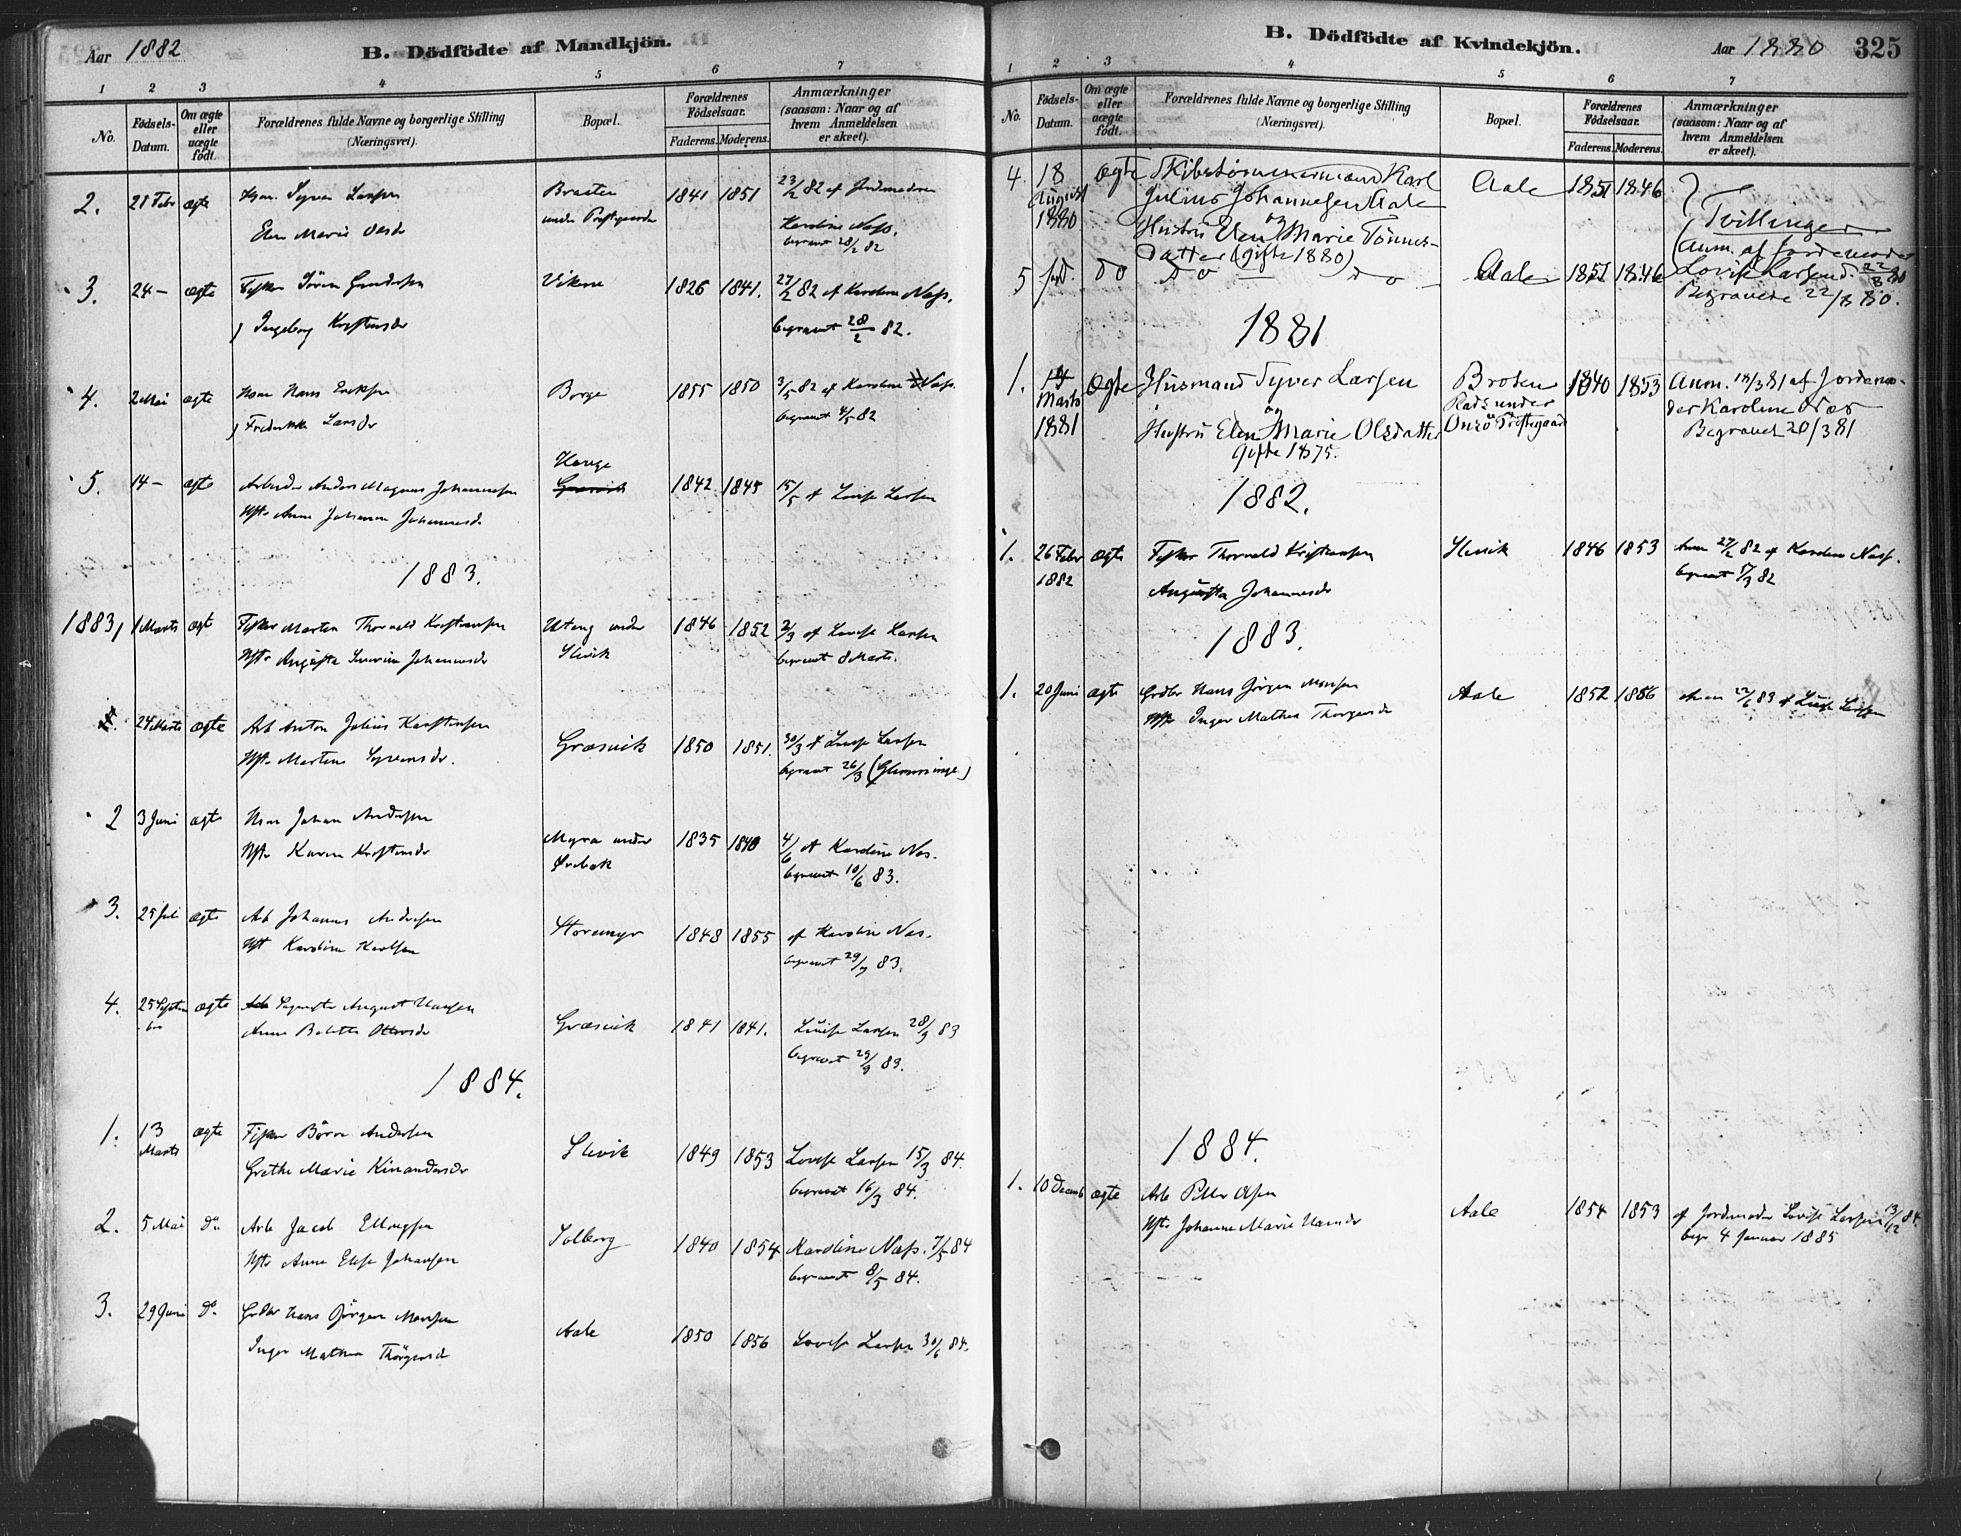 Aar 1882
B. Dödfödte af Mandkjön.
1 2 3 4 5 6 7
No.
Födsels-Datum.
Om ægte eller uægte födt.
Forældrenes fulde Navne og borgerlige Stilling (Næringsvei).
Bopæl.
Forældrenes Födselsaar.
Faderens. Moderens.
Anmærkninger (saasom: Naar og af hvem Anmeldelsen er skeet).
2. 21 Febr ægte Hsm. Syver Larsen Braaten 1841 1851 23/2 82 af Jordmoderen
Elen Marie Olsdr under Præstgaarden Karoline Næss.
begravet 28/2 82
3. 24 — ægte Fisker Sören Gundersen Vikene 1826 1841. 27/2 82 af Karoline Næss.
Ingeborg Kristensdr begravet 28/2 82.
4. 2 Mai ægte Hsm Hans Eriksen Borge 1855 1850 3/5 82 af Karoline Næss
Fredrikke Larsdr begravet 4/5 82
5. 14 — ægte Arbeider Anders Magnus Johannesen Hauge 1842 1845 15/5 af Lovise Larsen
Hstr Anne Johanne Johannesdr
1883.
1883, 1 Marts ægte Fisker Martin Thorvald Kristiansen Uteng under 1846 1852 2/3 af Lovise Larsen
Hstr Augusta Severine Johannesdr Slevik begravet 8 Marts.
24 Marts ægte Arb Anton Julius Karstensen Græsvik 1850 1851. 30/3 af Lovise Larsen
Hstr Martine Syversdr. begravet 26/3 (Glemminge)
2 3 Juni ægte Hsm Johan Andersen Myra under 1835 1840 4/6 af Karoline Næs.
Hstr Karen Kristensdr Ørebæk begravet 10/6 83.
3. 25 Juli ægte Arb Johannes Andersen Storemyr 1848 1855 af Karoline Næs.
Hstr Karoline Karlsen begravet 29/7 83.
4. 25 Septem- ægte August Hansen Græsvik 1841 1841. Lovise Larsen 28/9 83
ber Anne Bolette begravet 29/9 83.
1884.
1. 13 ægte Fisker Börre Andersen Slevik 1849 1853 Lovise Larsen 15/3 84.
Marts Grethe Marie Kinandersdr begravet 16/3 84.
2. 5 Mai do. Arb Jacob Ellingsen Solberg 1840 1854 Karoline Næss. 7/5 84
Hstr Anne Elise Johansen begravet 8/5 84.
3. 29 Juni do. Grdbr Hans Jörgen Monsen Aale 1850 1856 Lovise Larsen 30/6 84.
Inger Mathea Thorgersdr
B. Dödfödte af Kvindekjön.
Aar 1880 325
1 2 3 4 5 6 7
No.
Födsels-Datum.
Om ægte eller uægte födt.
Forældrenes fulde Navne og borgerlige Stilling (Næringsvei).
Bopæl.
Forældrenes Födselsaar.
Faderens. Moderens.
Anmærkninger (saasom: Naar og af hvem Anmeldelsen er skeet).
4. 18 ægte Skibstömmermand Karl Aale 1851 1846
August Julius Johannesen Aale Tvillinger
1880 og
Hustru Elen Marie Tönnes- Anm. af Jordemoder
datter (gifte 1880) Lovise Larsen d. 22/8 80
5 do do do Aale 1851 1846 Begravede 22/8 80.
1881
1. 14 ægte Husmand Syver Larsen Broten 1840 1853 Anm. 18/3 81 af Jordemo-
Marts og Plads under der Karoline Næs
1881 Hustru Elen Marie Olsdatter Onsö Præstegaard Begravet 20/3 81
gifte 1875.
1882.
1. 26 Febr ægte Fisker Thorvald Kristiansen Slevik 1846 1853 Anm 27/2 82 af Karoline Næss.
1882 Augusta Johannesdr begravet 5/3 82
1883.
1. 20 Juni ægte Grdbr Hans Jörgen Monsen Aale 1852 1856 Anm 22/6 83 af Lovise Larsen
Hstr Inger Mathea Thorgersdr
1884.
1. 10 Decemb ægte Arb Peter Olsen Aale 1854 1853 af Jordmoder Lovise Larsen 13/12 84.
Hstr Johanne Marie Hansdr begr. 4 Januar 1885